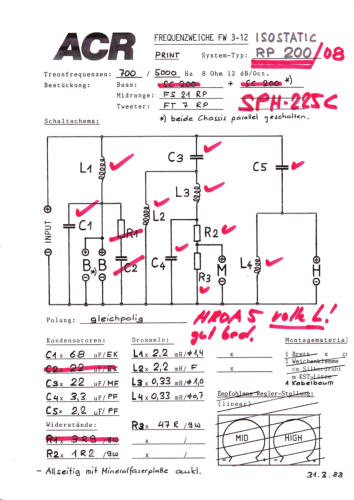 ACR
FREQUENZWEICHE FW 3-12 ISOSTATIC
PRINT System-Typ: RP 200/08
Trennfrequenzen: 700 / 5000 Hz 8 Ohm 12 dB/Oct.
Bestückung: Bass: SC 200 + SC 200 *)
Midrange: FS 21 RP
Tweeter: FT 7 RP
SPH-225C
*) beide Chassis parallel geschalten.
Schaltschema:
L1
C3
C5
L3
INPUT
C1
R1
L2
R2
B
B
*)
C2
C4
R3
M
L4
H
Polung: gleichpolig
HADA 5 volle L!
Kondensatoren:
C1 x 68 uF/EK
C2 x 22 uF/EK
C3 x 22 uF/MF
C4 x 3,3 uF/PF
C5 x 2,2 uF/PF
Widerstände:
R1 x 3R9 /9W
R2 x 1R2 /9W
Drosseln:
L1 x 2,2 mH/φ1,4
L2 x 2,2 mH/F
L3 x 0,33 mH/φ1,0
L4 x 0,33 mH/φ0,7
R3 x 47R /9W
x /
x /
x
x
Montagematerial
1 Brett x cm
1 Weichenklemme
cm Silberdraht
m KST-Litze
1 Kabelbaum
Empfohlene Regler-Stellung:
(linear)
MID
HIGH
- Allseitig mit Mineralfaserplatte auskl.
31.3.88